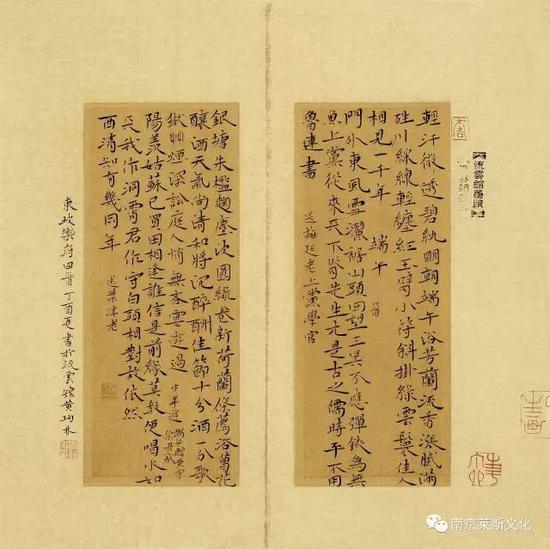 流雲館墨蹟
輕汗微透碧紈明朝端午浴芳蘭流香漲膩滿
川線輕纏紅玉臂小符斜掛綠雲鬟佳人
相見一千年 端午
門外東風雪灑裾山頭回望三吳不應彈鋏為無
魚上黨從來天下脊先生元是古之儒時平不用
魯連書 送梅廷老上黨學官
銀塘朱檻麴塵波圓綠卷新荷蘭條薦浴菖花
釀酒天氣尚清和將沉醉酬佳節十分酒一分歌
獄草煙深訟庭人悄無吝宴遊過 少年遊 端午贈黃守徐君猷
陽羨姑蘇已買田相逢誰信是前緣莫教便唱水如
天我作洞霄君作守白頭相對故依然
西湖知有幾同年 送葉淳老
東坡樂府四首丁酉夏書於流雲館黃均
南京莱斯文化